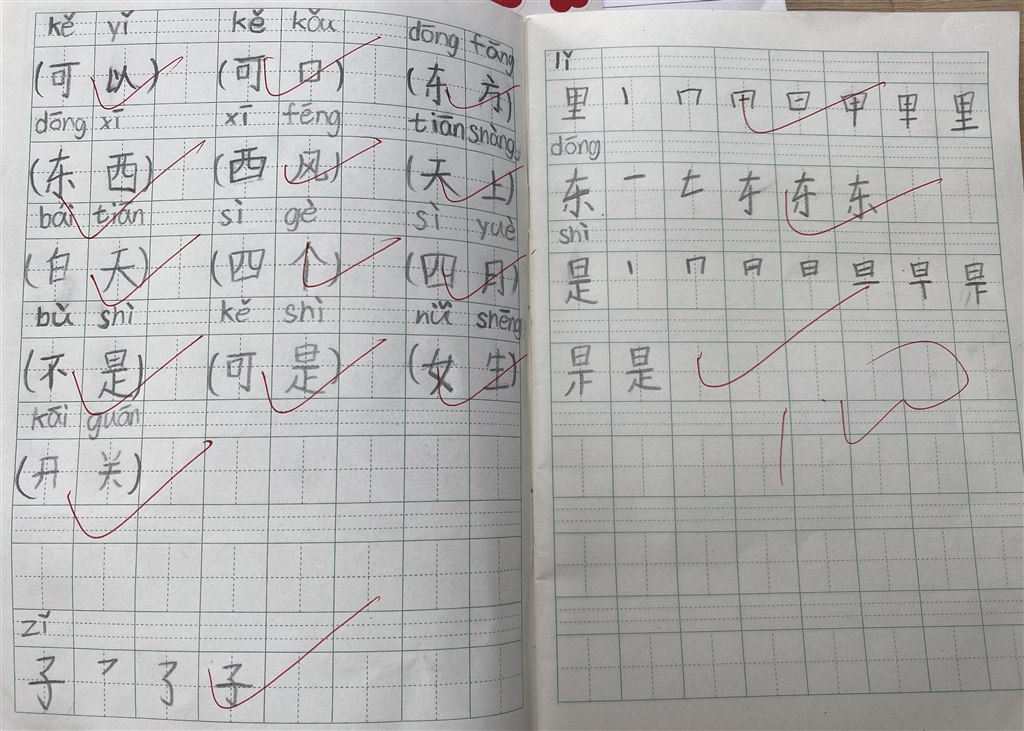 kě yǐ kě kǒu dōng fāng
(可以) (可口) (东方)
dōng xī xī fēng tiān shàng
(东西) (西风) (天上)
bái tiān sì gè sì yuè
(白天) (四个) (四月)
bǔ shì kě shì nǚ shēng
(不是) (可是) (女生)
kāi guān
(开关)
zǐ
子 乛 了 子
lǐ
里 丨 冂 日 曰 甲 甲 里
dōng
东 一 𠂇 东 东 东
shì
是 丨 冂 日 日 旦 早 是
是 是